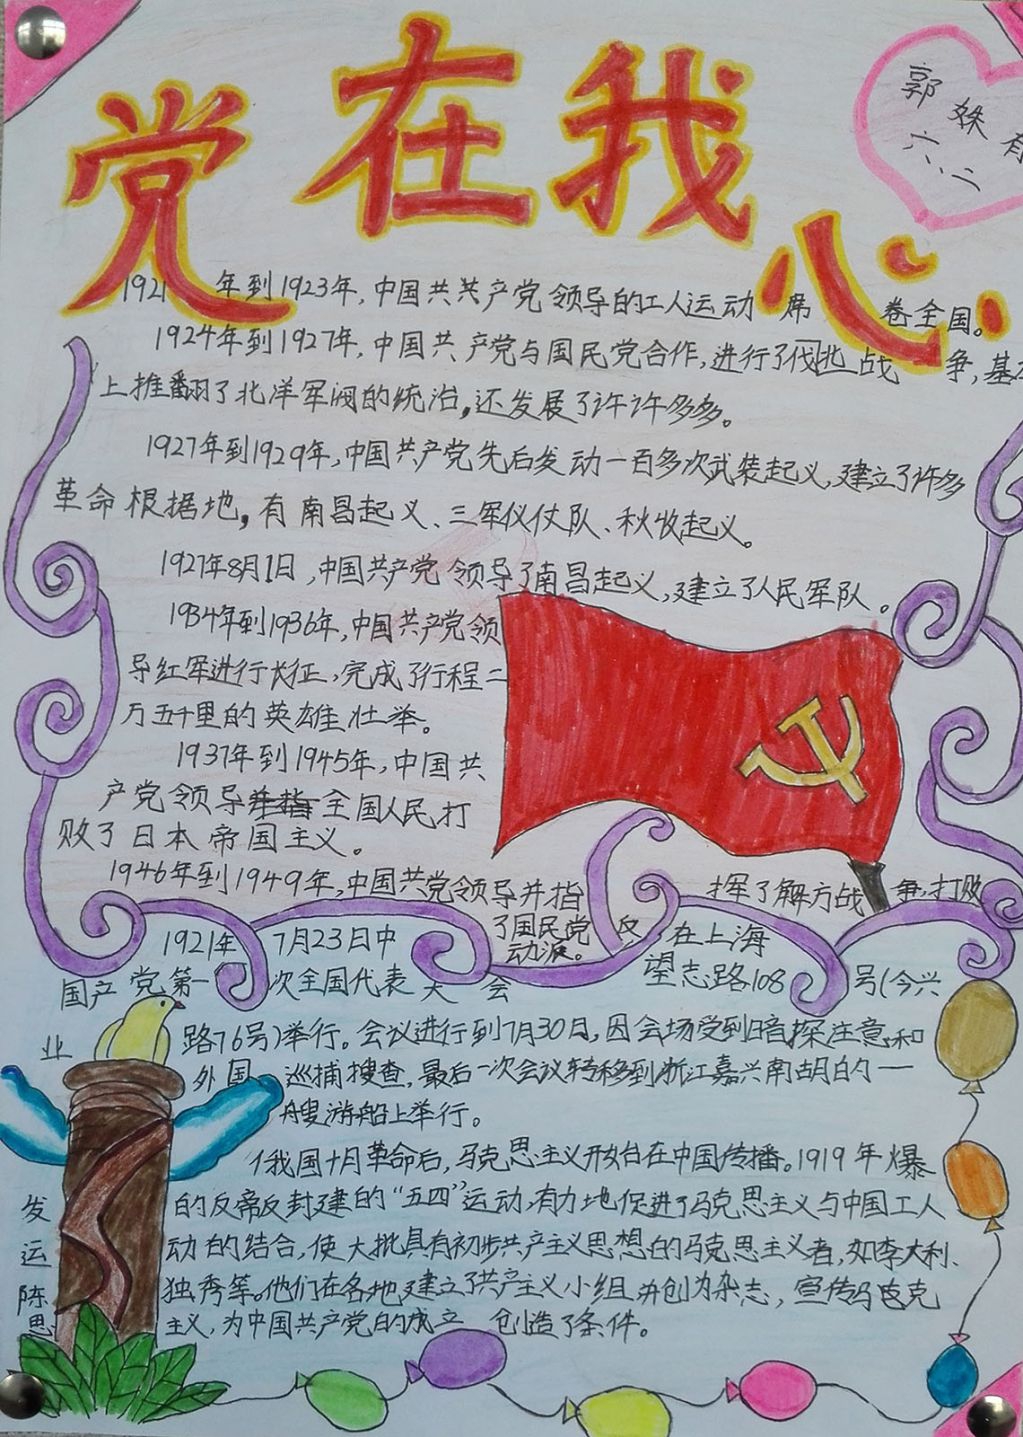 党在我心
郭姝存
六、二
1921年到1923年,中国共共产党领导的工人运动席卷全国。
1924年到1927年,中国共产党与国民党合作,进行了伐北战争,基本
上推翻了北洋军阀的统治,还发展了许许多多。
1927年到1929年,中国共产党先后发动一百多次武装起义,建立了许多
革命根据地,有南昌起义、三军仪仗队、秋收起义。
1927年8月1日,中国共产党领导了南昌起义,建立了人民军队。
1934年到1936年,中国共产党领
导红军进行长征,完成了行程二
万五千里的英雄壮举。
1937年到1945年,中国共
产党领导全国人民打
败了日本帝国主义。
1946年到1949年,中国共党领导并指挥了解方战争,打败
了国民党反
动派。
1921年7月23日中在上海
国产党第一次全国代表大会望志路108号(今兴
业路76号)举行。会议进行到7月30日,因会场受到暗探注意和
外国巡捕搜查,最后一次会议转移到浙江嘉兴南胡的一
艘游船上举行。
俄国十月革命后,马克思主义开始在中国传播。1919年爆
发的反帝反封建的“五四”运动,有力地促进了马克思主义与中国工人
运动的结合,使大批具有初步共产主义思想的马克思主义者,如李大利、
陈独秀等。他们在各地建立了共产主义小组,并创为杂志,宣传马克
思主义,为中国共产党的成立创造了条件。